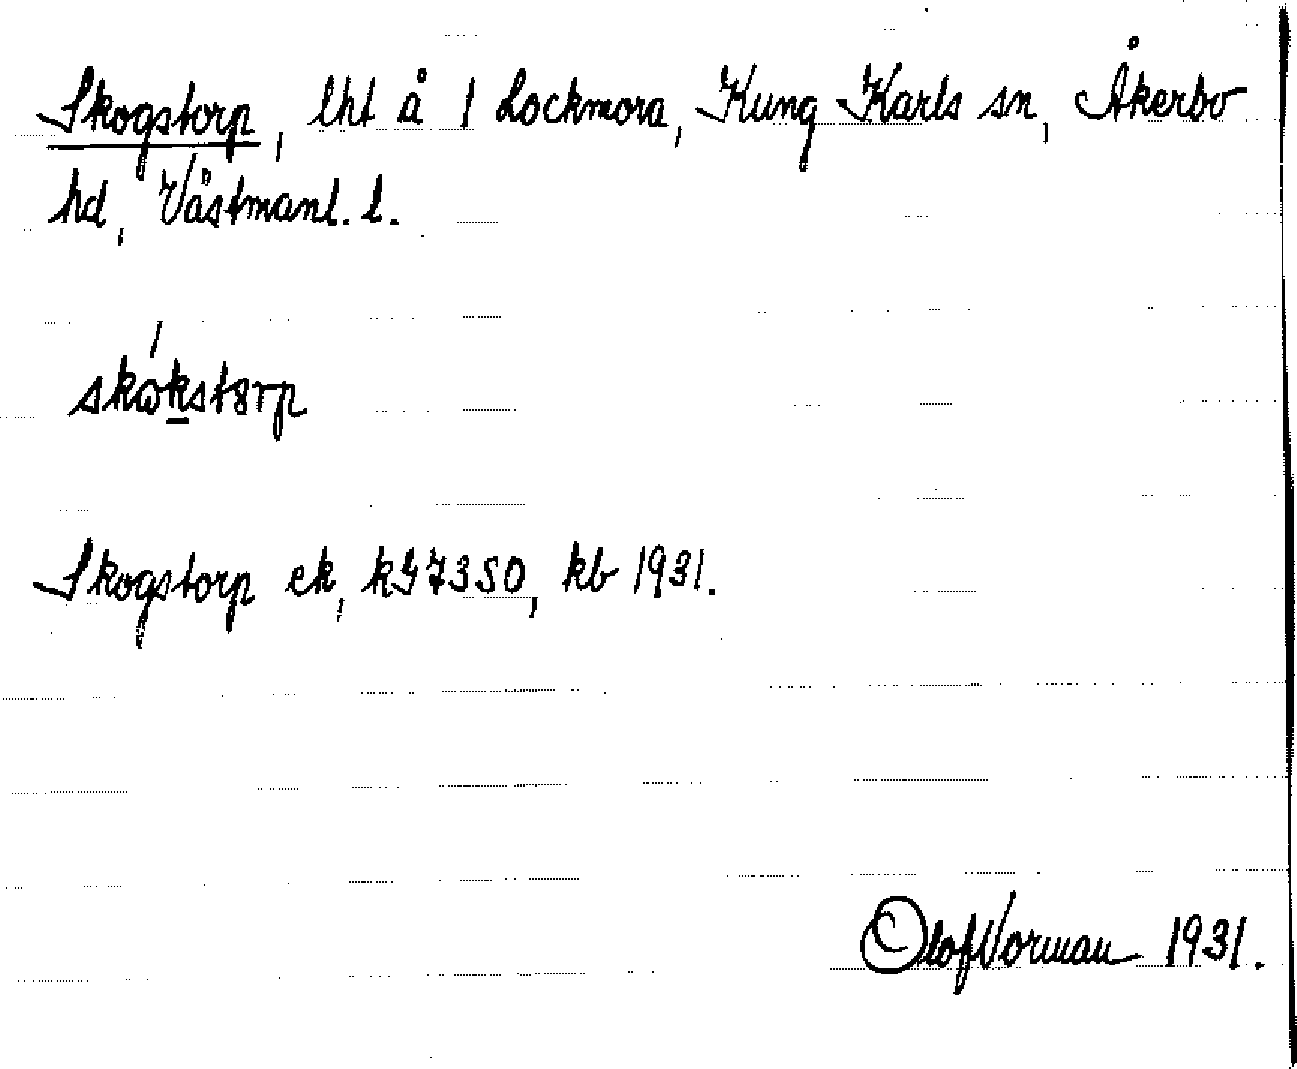 Skogstorp, lht å 1 Lockmora, Kung Karls sn, Åkerbo
hd, Västmanl. l.
skωkstørp
Skogstorp ek, kG7350, kb 1931.
Olof Norman 1931.